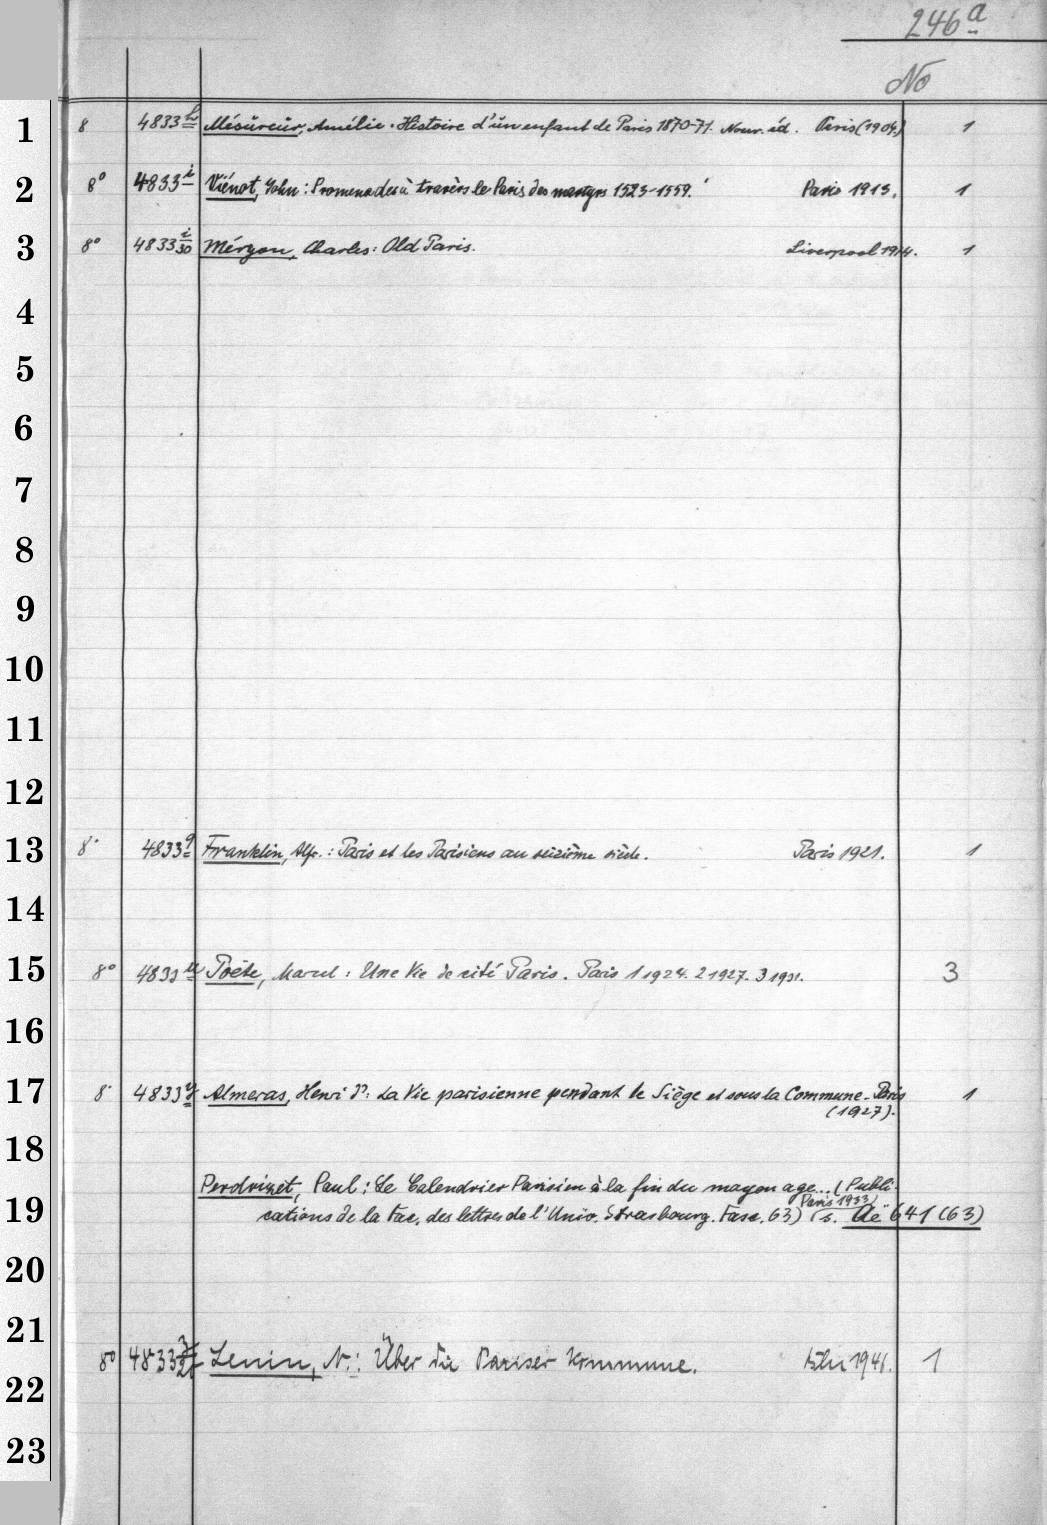 246a
No
1 8 4833 h Mésureur, Amélie. Histoire d'un enfant de Paris 1870-71. Nouv. éd. Paris (1904.) 1
2 8° 4833 i Viénot, John: Promenades à travers le Paris des martyrs 1523-1559. Paris 1913. 1
3 8° 4833 i/30 Méryon, Charles: Old Paris. Liverpool 1914. 1
4
5
6
7
8
9
10
11
12
13 8° 4833 q Franklin, Alfr.: Paris et les Parisiens au seizième siècle. Paris 1921. 1
14
15 8° 4833 u Poète, Marcel: Une Vie de cité Paris. Paris 1 1924. 2 1927. 3 1931. 3
16
17 8° 4833 y Almeras, Henri d': La Vie parisienne pendant le Siège et sous la Commune. Paris 1
(1927).
18
Perdrizet, Paul: Le Calendrier Parisien à la fin du moyen age... (Publi-
Paris 1933)
19 cations de la Fac. des lettres de l'Univ. Strasbourg. Fasc. 63) s. Ae 641 (63)
20
21
8° 4833 Lenin, N.: Über die Pariser Kommune. 1946. 1
22
23